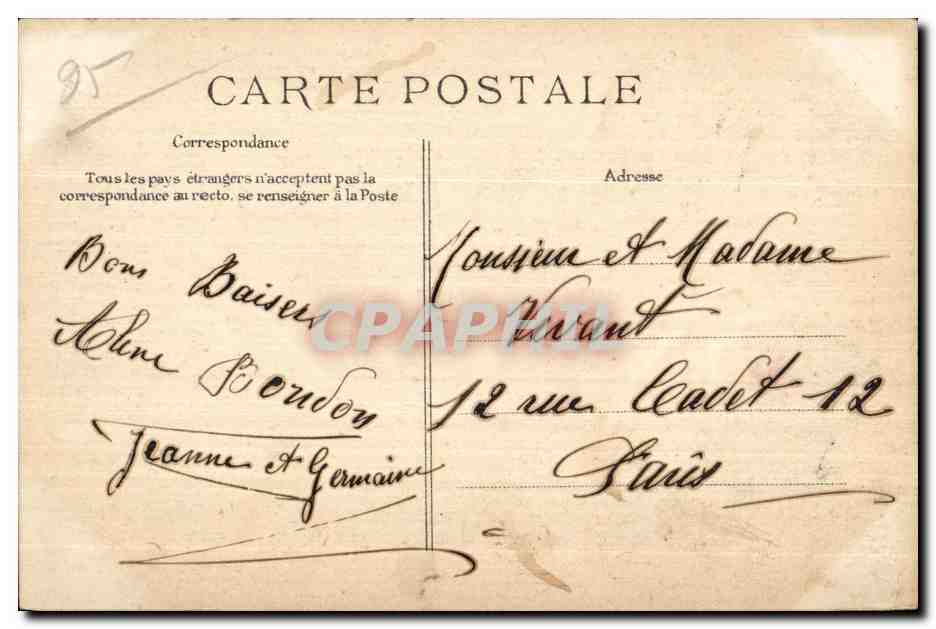 95
CARTE POSTALE
Correspondance
Tous les pays étrangers n'acceptent pas la
correspondance au recto, se renseigner à la Poste
Adresse
Bons Baisers
Bourdon
Jeanne et Germaine
Monsieur et Madame
Vivant
12 rue Cadet 12
Paris
CPAPHIL